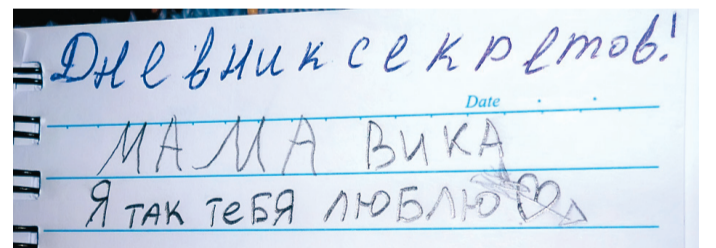 Дневник секретов!
Date
МАМА ВИКА
Я так тебя люблю